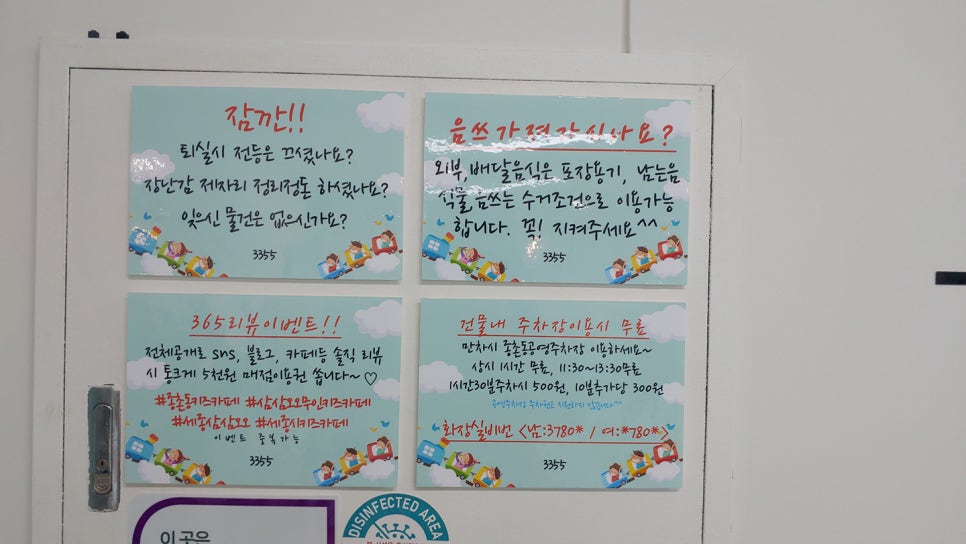 잠깐!!
퇴실시 전등은 끄셨나요?
장난감 제자리 정리정돈 하셨나요?
잊으신 물건은 없으신가요?
3355
음쓰가져가시나요?
외부, 배달음식은 포장용기, 남는음
식물음쓰는 수거조건으로 이용가능
합니다. 꼭! 지켜주세요^^
3355
365리뷰이벤트!!
전체공개로 sns, 블로그, 카페등 솔직 리뷰
시 통크게 5천원 매점이용권 쏩니다~♡
#종촌동키즈카페 #삼삼오오무인키즈카페
#세종삼삼오오 #세종시키즈카페
이벤트 중복가능
3355
건물내 주차장이용시 무료
만차시 종촌동공영주차장 이용하세요~
상시 1시간 무료, 11:30~13:30무료
1시간30분주차시 500원, 10분추가당 300원
공영주차장 주차권은 지원하지 않습니다^^
화장실비번 <남:3780* / 여:*780*>
3355
이곳은
DISINFECTED AREA